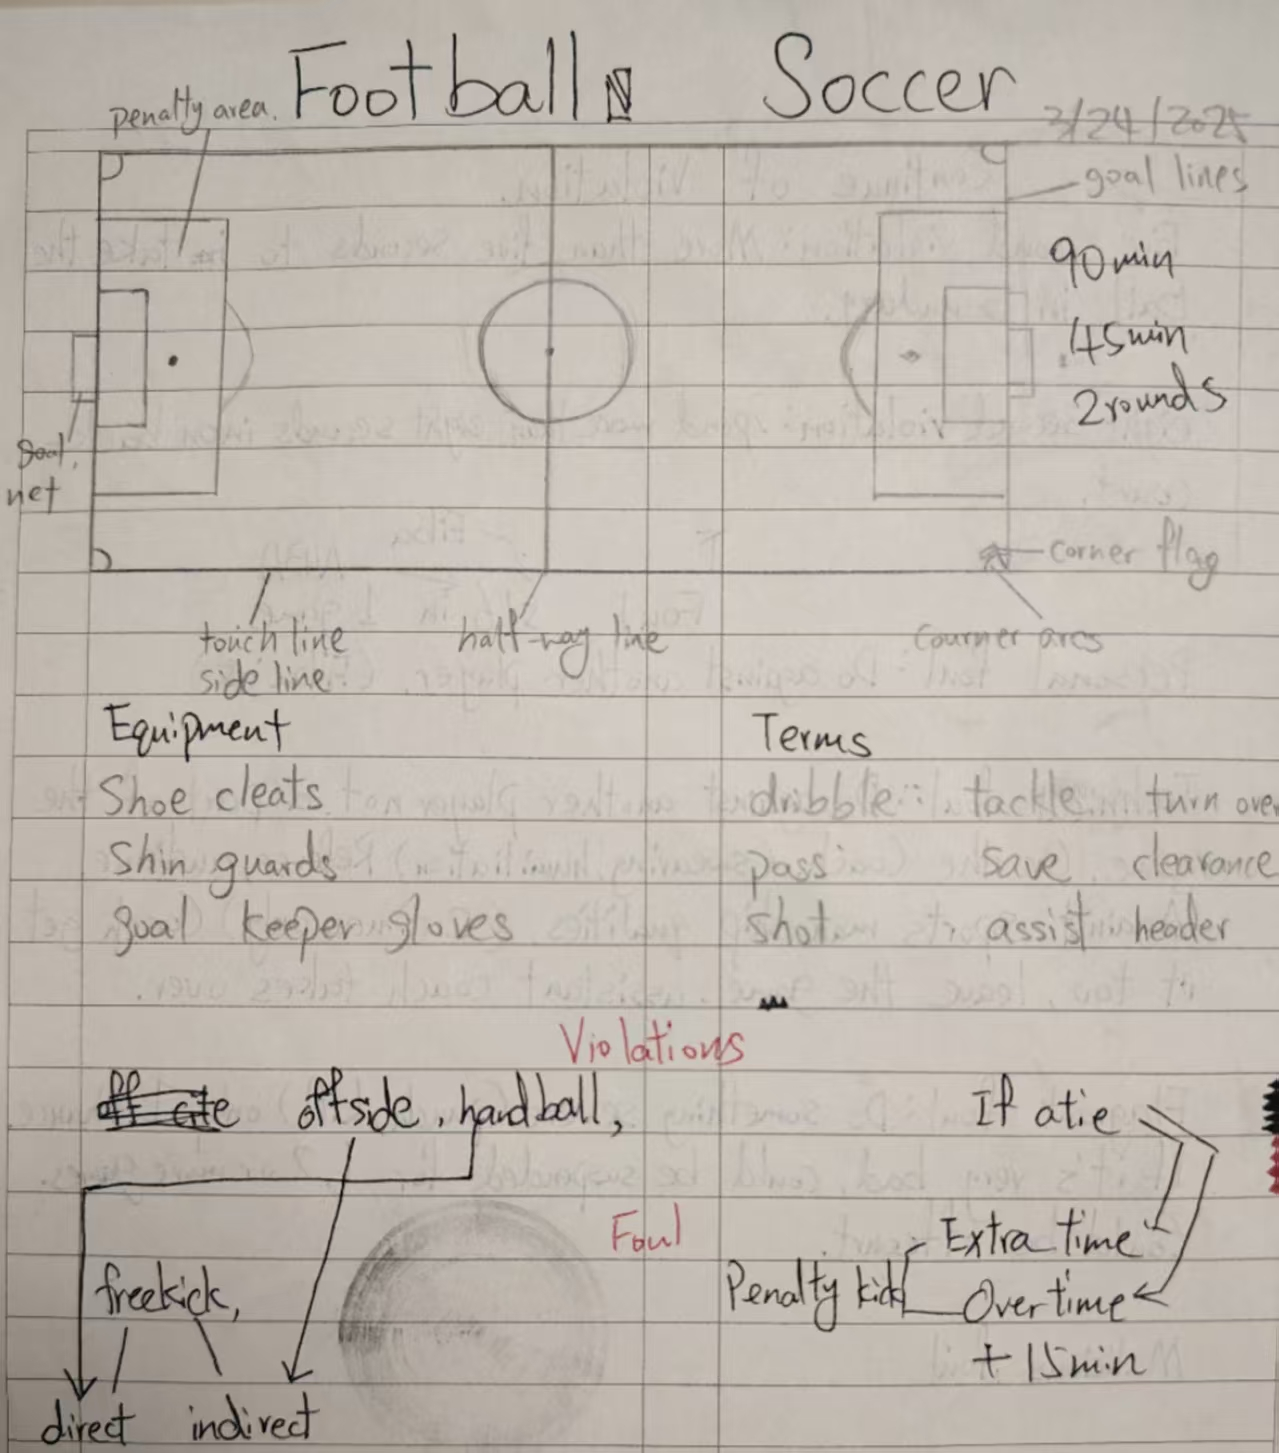 Football Soccer
penalty area.
3/24/2025
goal lines
90min
45min
2rounds
goal.
net
corner flag
touch line
side line
half-way line
Courner arcs
Equipment
Shoe cleats
Shin guards
goal keeper gloves
Terms
dribble tackle turn over
pass save clearance
shot assist header
Violations
offside, handball,
If a tie
Foul
Extra time
Penalty kick
Overtime
+ 15min
freekick,
direct indirect